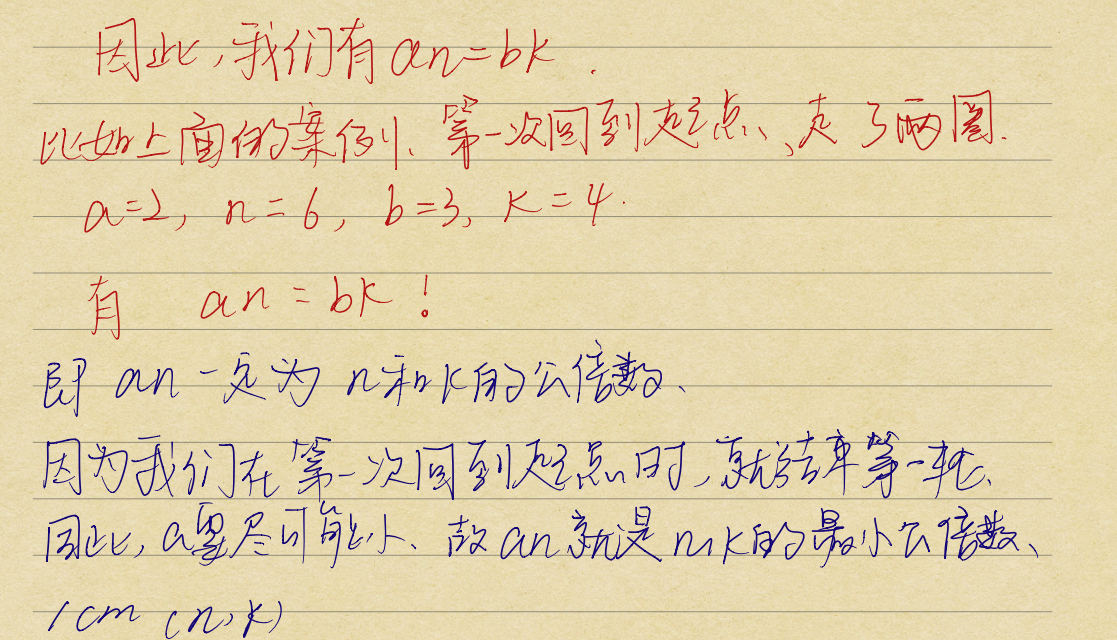 因此,我们有 an=bk.
比如上面的案例、第一次回到起点、走了两圈.
a=2, n=6, b=3, k=4.
有 an=bk!
即 an一定为 n和k的公倍数、
因为我们在第一次回到起点时,就结束第一轮、
因此,a要尽可能小、故an就是n,k的最小公倍数、
lcm(n,k)